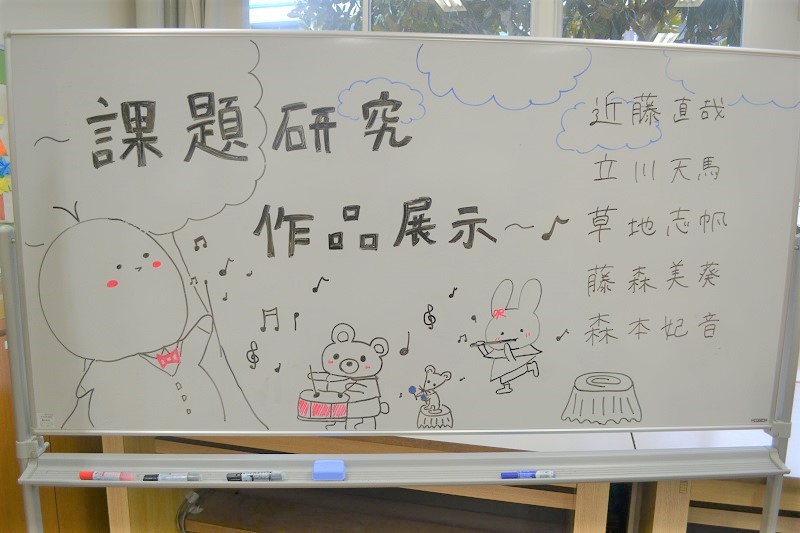 ～課題研究
作品展示～♪
近藤直哉
立川天馬
草地志帆
藤森美葵
森本妃音